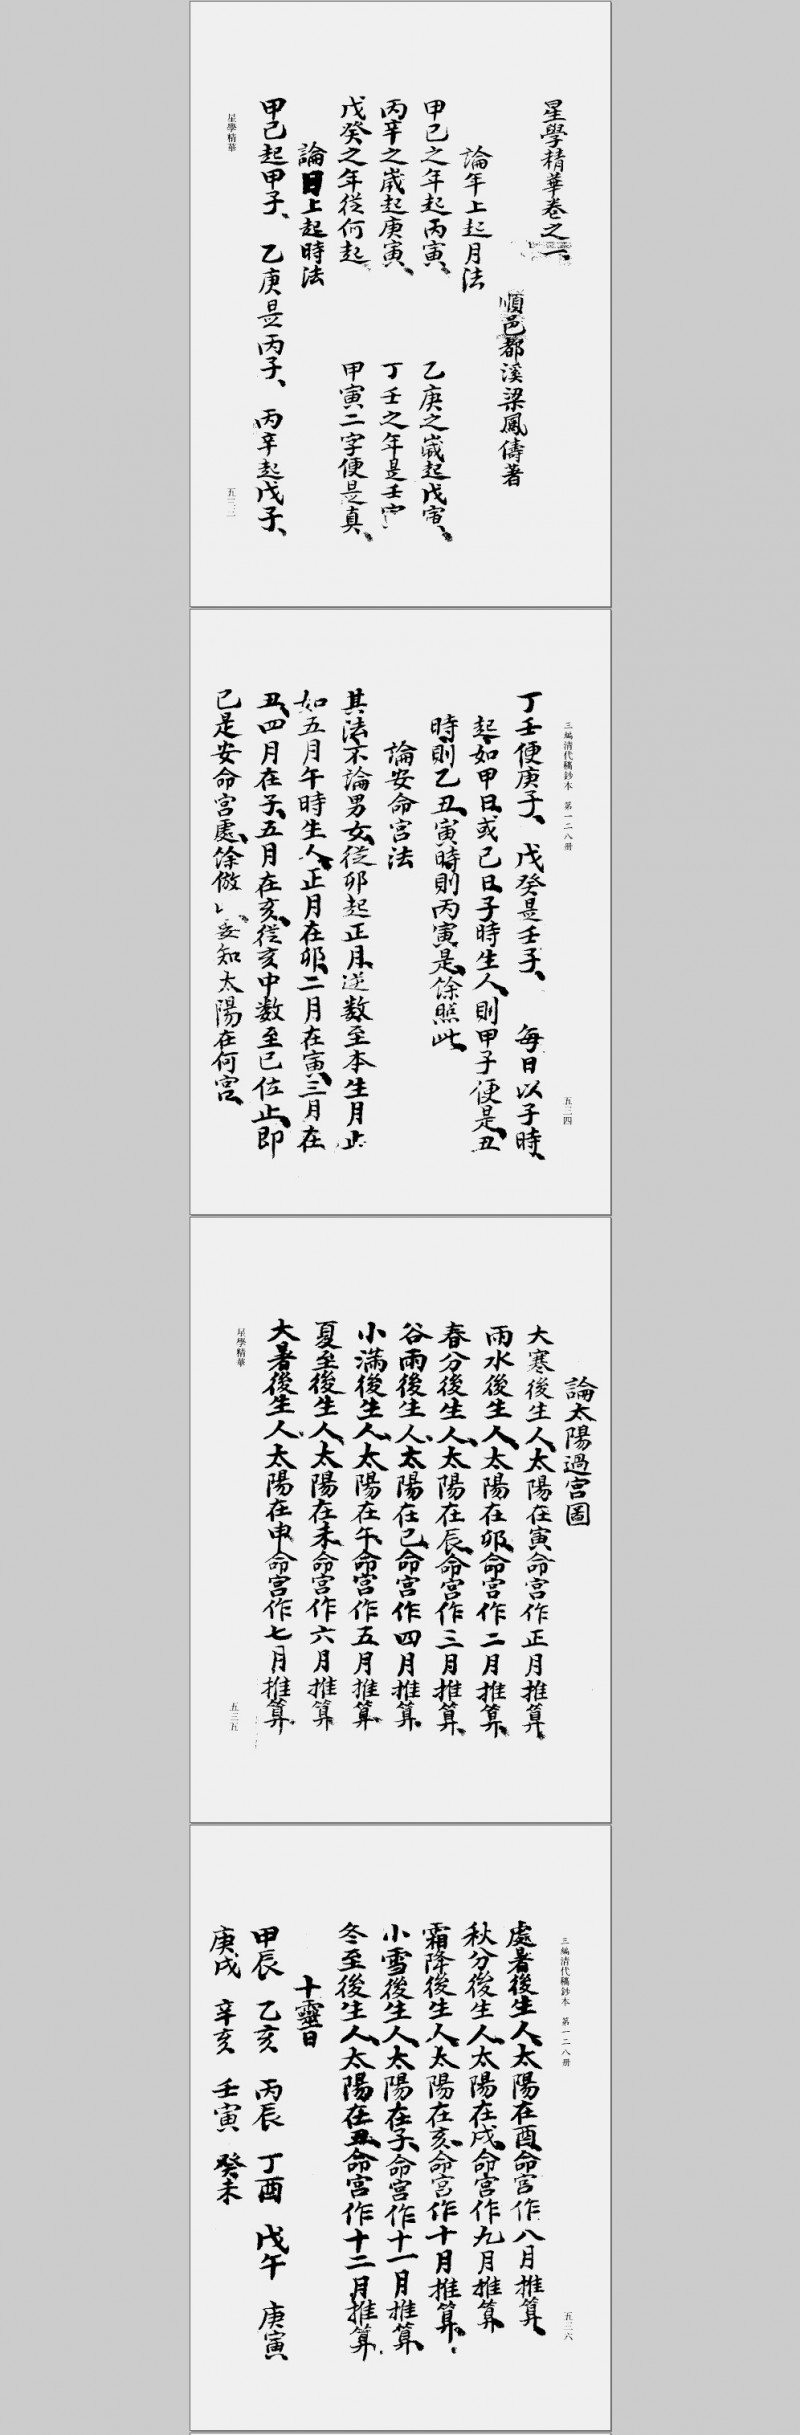 星學精華卷之一
順邑都溪梁鳳儔著
論年上起月法
甲己之年起丙寅、　乙庚之歲起戊寅、
丙辛之歲起庚寅、　丁壬之年是壬寅
戊癸之年從何起、　甲寅二字便是真、
論日上起時法
甲己起甲子、　乙庚是丙子、　丙辛起戊子、
星學精華
五三三
三編清代稿鈔本　第一二八册
五三四
丁壬便庚子、　戊癸是壬子、　每日以子時
起、如甲日、或己日、子時生人、則甲子便是、丑
時則乙丑、寅時則丙寅是、餘照此、
論安命宮法
其法不論男女、從卯起正月、逆數至本生月止
如五月午時生人、正月在卯、二月在寅、三月在
丑、四月在子、五月在亥、從亥中數至巳位止、即
巳是安命宮處、餘倣　妄知太陽在何宮、
論太陽過宮圖
大寒後生人、太陽在寅、命宮作正月推算、
雨水後生人、太陽在卯、命宮作二月推算、
春分後生人、太陽在辰、命宮作三月推算、
谷雨後生人、太陽在巳、命宮作四月推算、
小滿後生人、太陽在午、命宮作五月推算、
夏至後生人、太陽在未、命宮作六月推算
大暑後生人、太陽在申、命宮作七月推算、
星學精華
五三五
三編清代稿鈔本　第一二八册
五三六
處暑後生人、太陽在酉、命宮作八月推算、
秋分後生人、太陽在戌、命宮作九月推算
霜降後生人、太陽在亥、命宮作十月推算、
小雪後生人、太陽在子、命宮作十一月推算
冬至後生人、太陽在丑、命宮作十二月推算、
十靈日
甲辰　乙亥　丙辰　丁酉　戊午　庚寅
庚戌　辛亥　壬寅　癸未